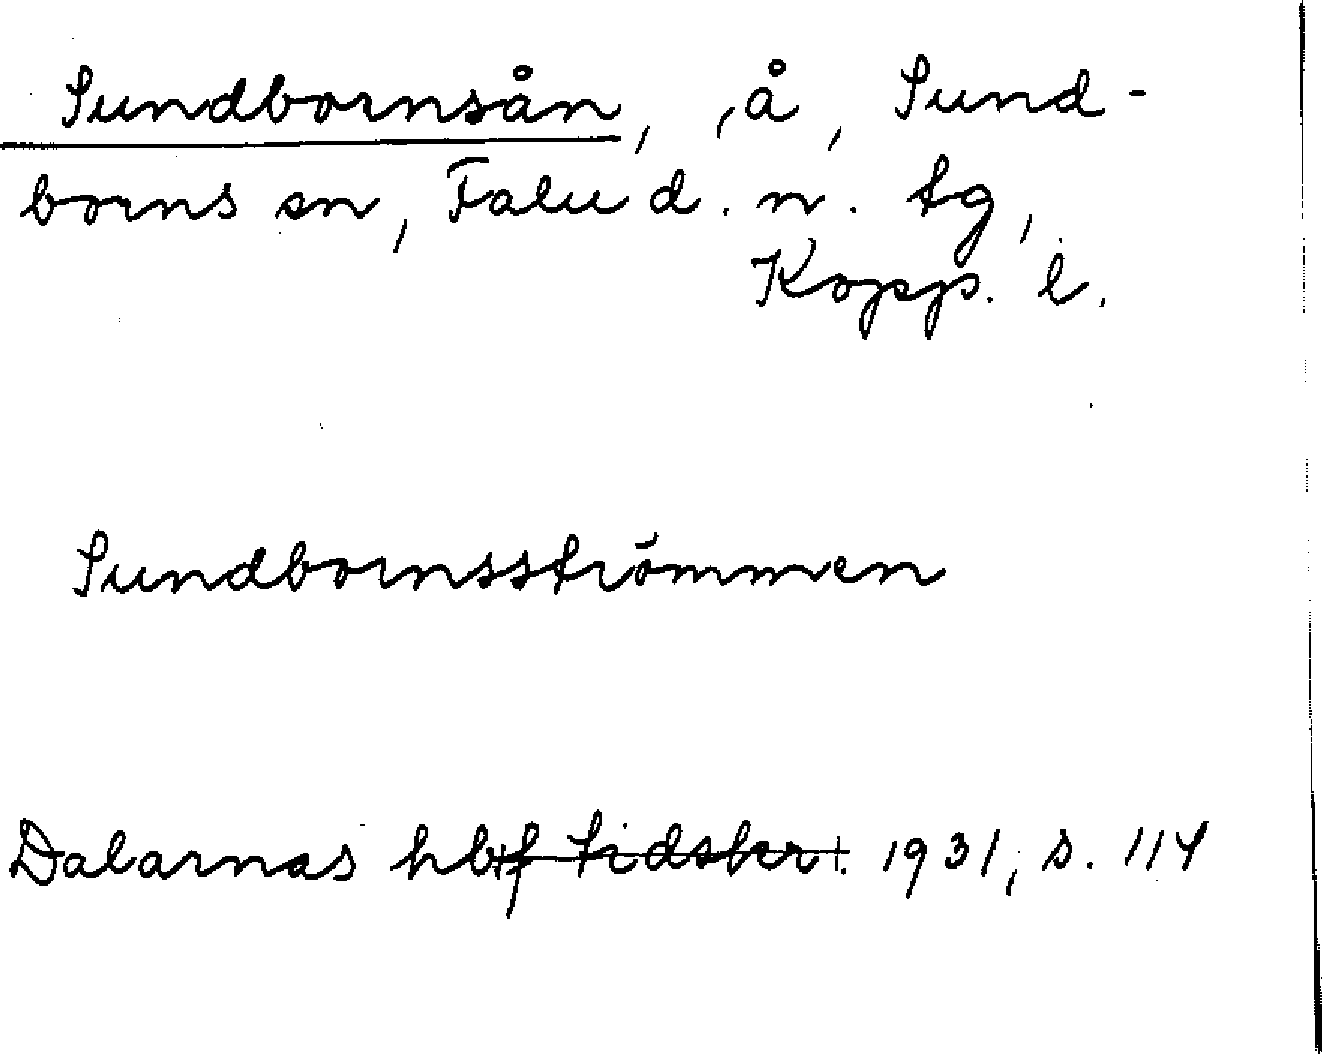 Sundbornsån, , å, Sund-
borns sn, Falu d. n. tg,
Kopp. l.
Sundbornsströmmen
Dalarnas hbf tidskr. 1931, s. 114